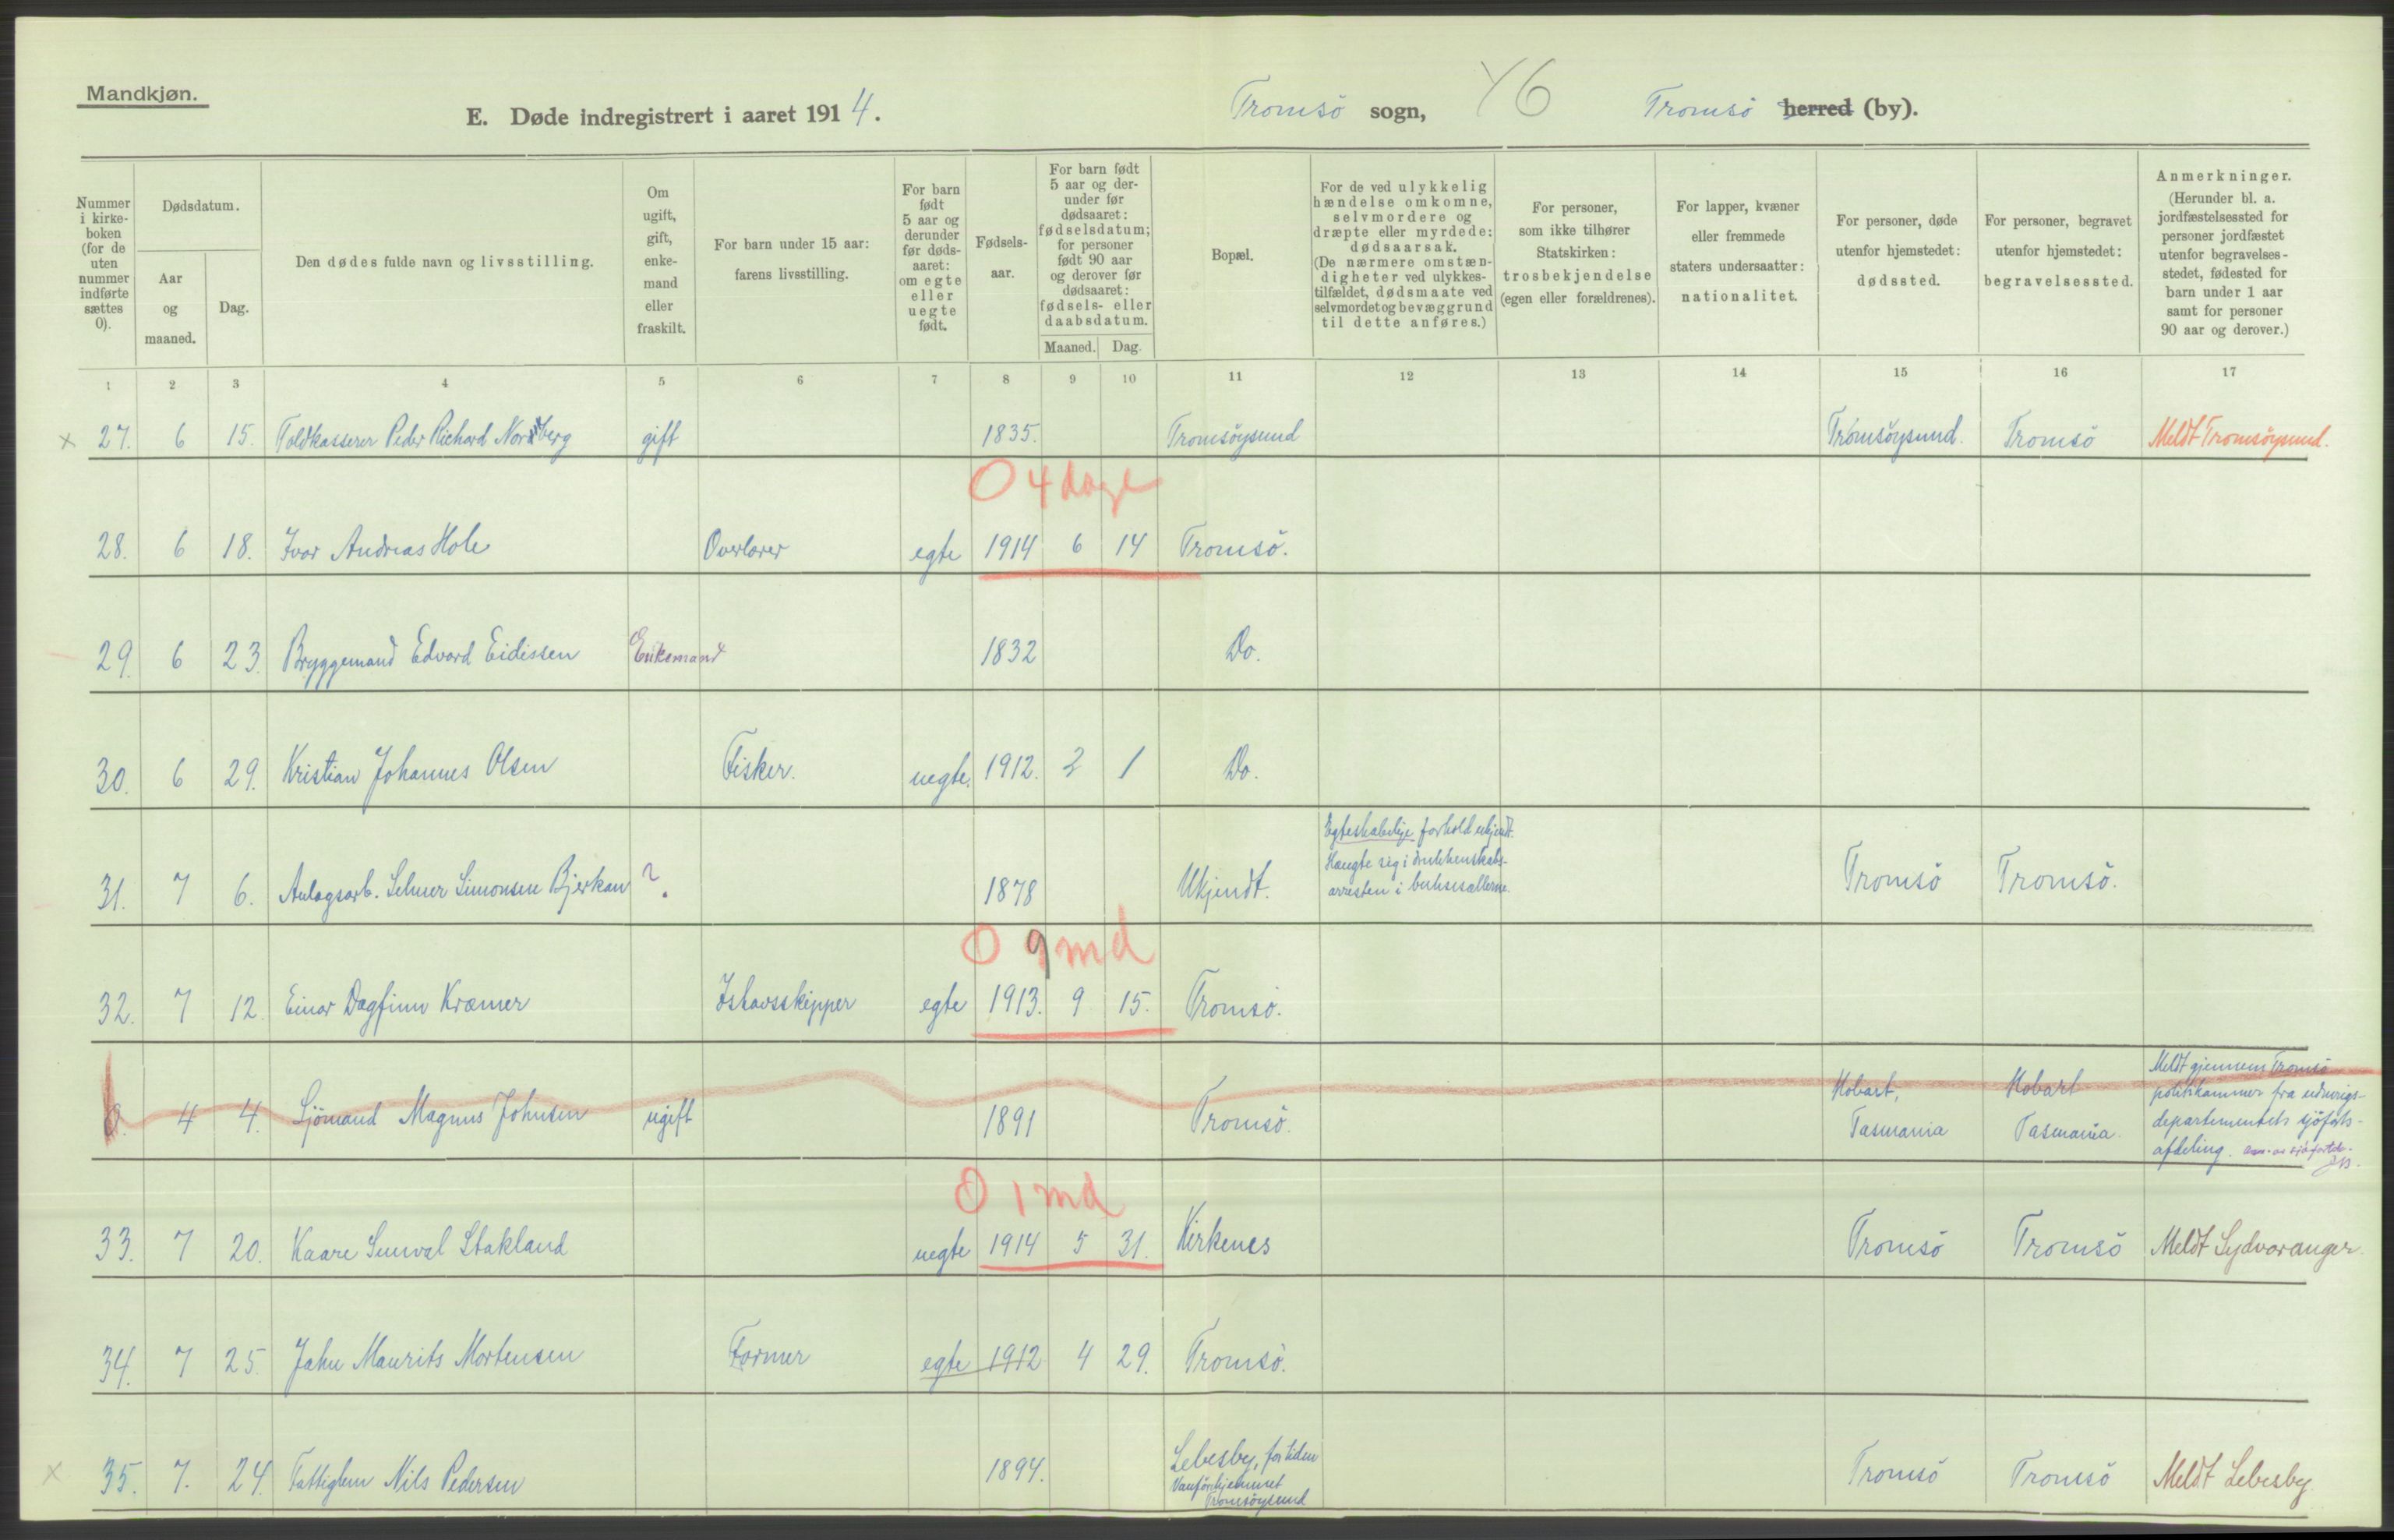 Mandkjøn.
E. Døde indregistrert i aaret 1914.
Tromsö sogn,
46
Tromsö herred (by).
Nummer i kirke-boken (for de uten nummer indførte sættes 0).
Dødsdatum.
Aar og maaned.
Dag.
Den dødes fulde navn og livsstilling.
Om ugift, gift, enke-mand eller fraskilt.
For barn under 15 aar: farens livsstilling.
For barn født 5 aar og derunder før døds-aaret: om egte eller uegte født.
Fødsels-aar.
For barn født 5 aar og der-under før dødsaaret: fødselsdatum; for personer født 90 aar og derover før dødsaaret: fødsels- eller daabsdatum.
Maaned. Dag.
Bopæl.
For de ved ulykkelig hændelse omkomne, selvmordere og dræpte eller myrdede: dødsaarsak. (De nærmere omstæn-digheter ved ulykkes-tilfældet, dødsmaate ved selvmordet og bevæggrund til dette anføres.)
For personer, som ikke tilhører Statskirken: trosbekjendelse (egen eller forældrenes).
For lapper, kvæner eller fremmede staters undersaatter: nationalitet.
For personer, døde utenfor hjemstedet: dødssted.
For personer, begravet utenfor hjemstedet: begravelsessted.
Anmerkninger. (Herunder bl. a. jordfæstelsessted for personer jordfæstet utenfor begravelses-stedet, fødested for barn under 1 aar samt for personer 90 aar og derover.)
1 2 3 4 5 6 7 8 9 10 11 12 13 14 15 16 17
x 27. 6 15. Toldkasserer Peder Richard Nordberg gift 1835. Tromsöysund Tromsöysund. Tromsö Meldt Tromsöysund.
0 4 dage
28. 6 18. Ivar Andreas Hole Overlærer egte 1914 6 14 Tromsö.
29. 6 23. Bryggemand Edvard Eidissen Enkemand 1832 Do.
30. 6 29. Kristian Johannes Olsen Fisker. uegte. 1912. 2 1 Do.
Egteskabelige forhold ukjendt.
Hængte sig i drukkenskabs-
arresten i
31. 7 6. Anlægsarb. Selmer Simonsen Bjerkan ? 1878 Ukjendt. Tromsö Tromsö.
0 9 md
32. 7 12. Einar Dagfinn Kræmer Ishavsskipper egte 1913. 9 15. Tromsö.
Meldt gjennem Tromsö
0. 4 4. Sjömand Magnus Johnsen ugift 1891 Tromsö. Hobart, Tasmania Hobart Tasmania.
politikammer fra utenrigs-
departementets sjöfarts-
afdeling.
0 1 md
33. 7 20. Kaare Stakland uegte 1914 5 31. Kirkenes Tromsö Tromsö Meldt Sydvaranger.
34. 7 25. John Maurits Mortensen Former egte 1912 4 29. Tromsö.
x 35. 7. 24. Fattiglem Nils Pedersen 1894. Lebesby, for tiden
Vanförehjemmet
Tromsöysund
Tromsö Tromsö Meldt Lebesby.